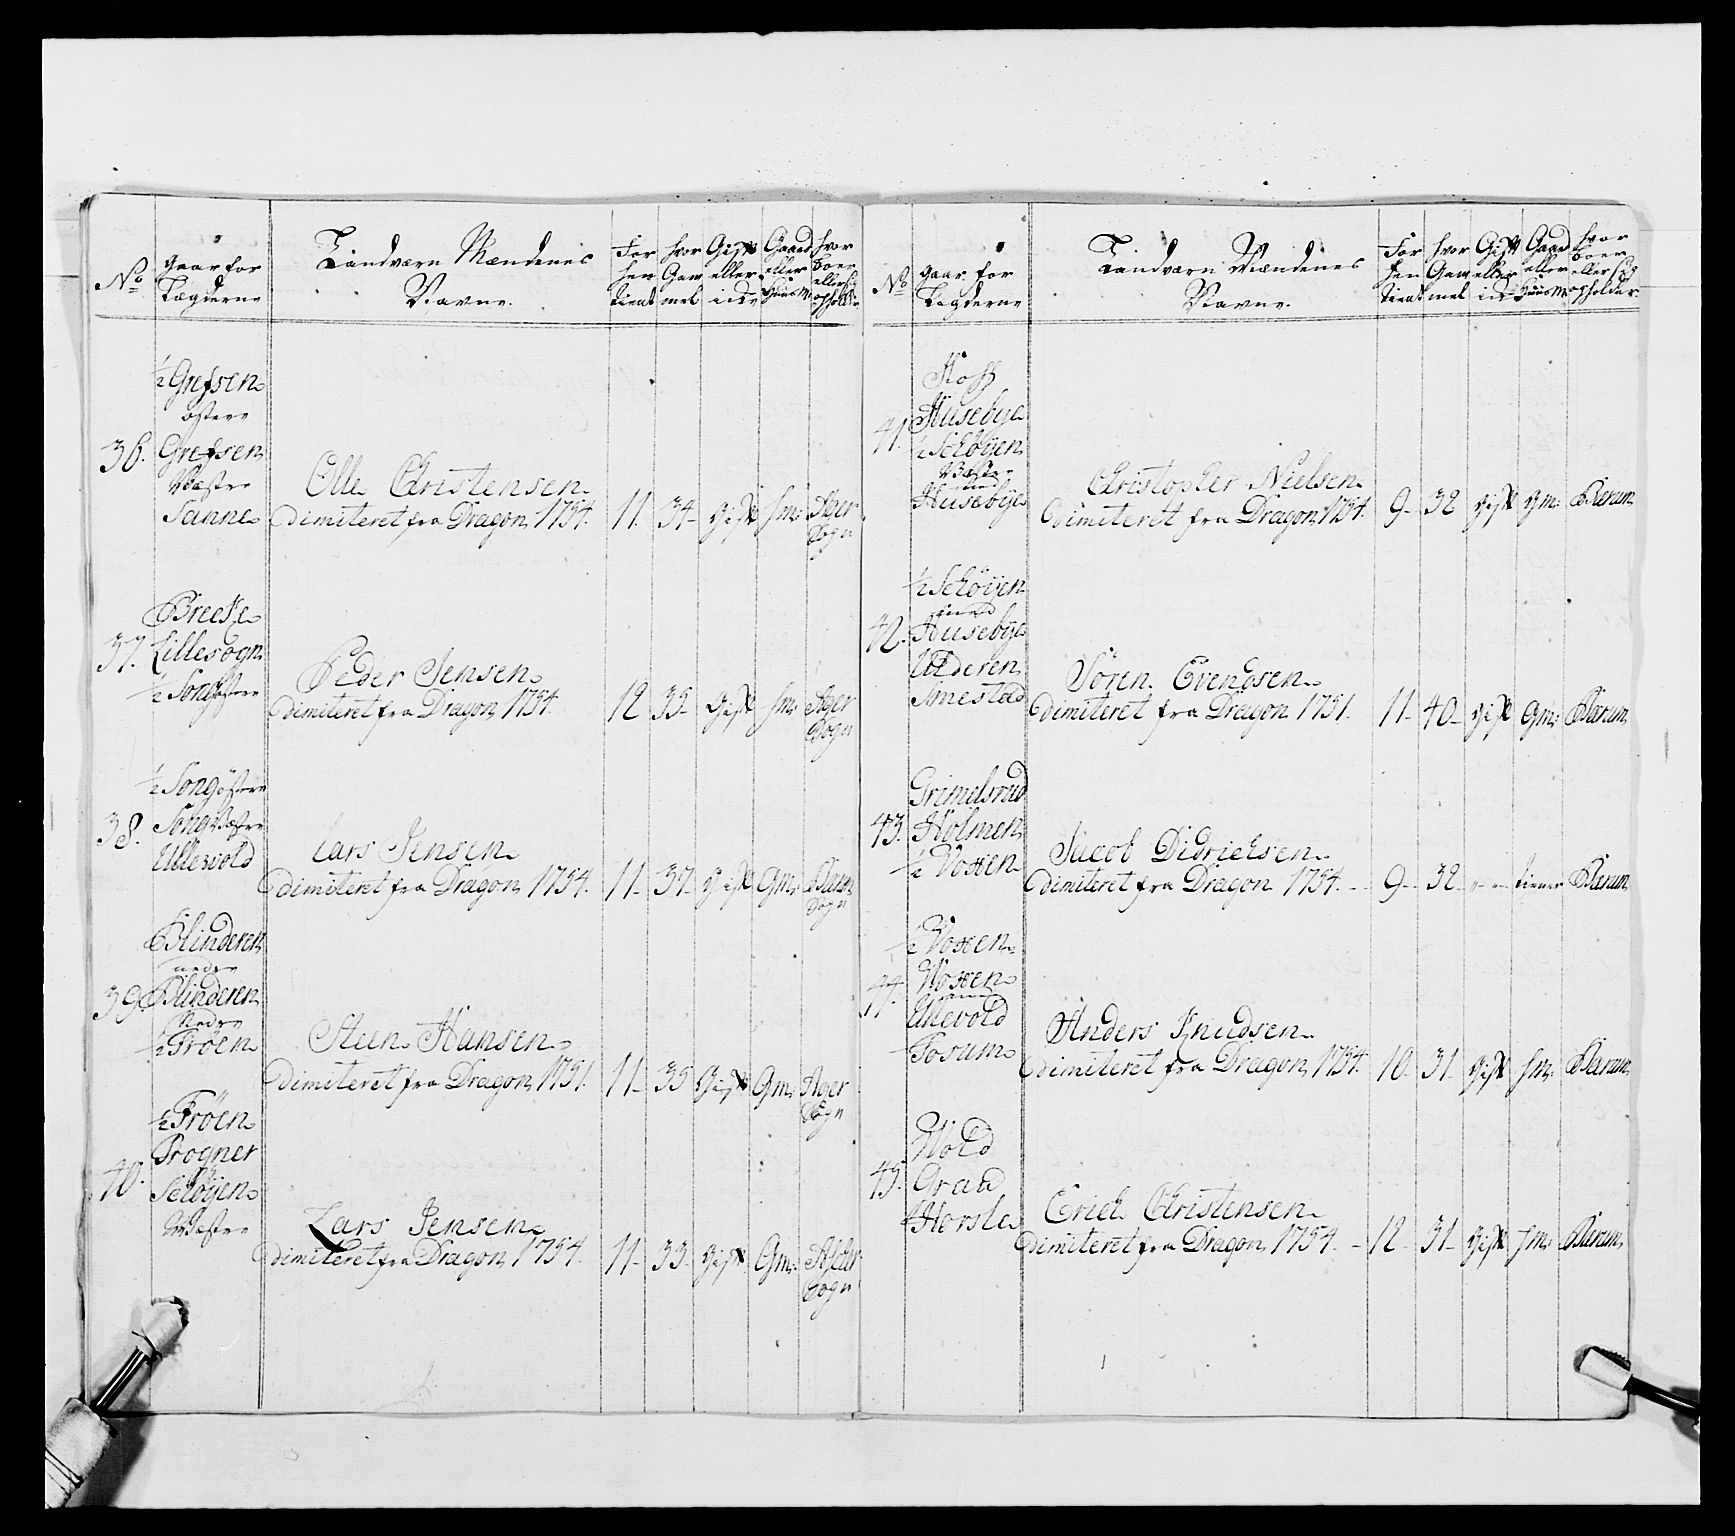 No
Gaar for
Lægderne
Landværn Mændenes
Navne.
For
hen
tient
hvor
Gam
mel
Gift
eller
Gaard
eller
Huus M
hvor
boer
eller
opholder
½ Grefsen
østere
36. Grefsen
Væstre
Sanne
Olle Christensen
dimiteret fra Dragon 1754. 11. 34 gift Hm: Ager
Sogn
Breeke
37. Lillesogn
½ Sogn østre
Peder Jensen
dimiteret fra Dragon 1754. 12 35 gift Hm: Ager
Sogn
½ Song østre
38. Song Væstre
Ullevold
Lars Jensen
dimiteret fra Dragon 1754. 11 37 gift Gm: Bærum
Sogn
Blinderen
39. Blinderen
Nedre
½ Frøen
Steen Hansen
dimiteret fra Dragon 1751. 11 35 Gift Gm: Ager
Sogn
½ Frøen
Frogner
40. Schøyen
Væstre
Lars Jensen
dimiteret fra Dragon 1754. 11 33 gift Gm: Asker
Sogn
No
Gaar for
Lægderne
Landværn Mændenes
Navne.
For
hen
tient
hvor
Gam
mel
Gift
eller
Gaard
eller
Huus M
hvor
boer
eller sig
opholder
Hoff
Husebye
41. ½ Schøyen
Væstre
Husebye
Christopher Nielsen
dimiteret fra Dragon 1754. 9 32 gift Gm: Bærum
½ Schøyen
42. Husebye
Ulderen
Smestad
Søren Evensen
dimiteret fra Dragon 1751. 11 40 gift Gm: Bærum
Grimelsrud
43. Holmen
½ Voxsen
Jacob Didrichsen
dimiteret fra Dragon 1754. 9 32 - - tiener Bærum
½ Voxsen
44. Voxsen
Ullevold
Fosum
Anders Knudsen
dimiteret fra Dragon 1754. 10 31 gift Hm: Bærum
Hold
45. Graud
Horsle
Erich Christensen
dimiteret fra Dragon 1754. 12 31 gift Hm: Bærum